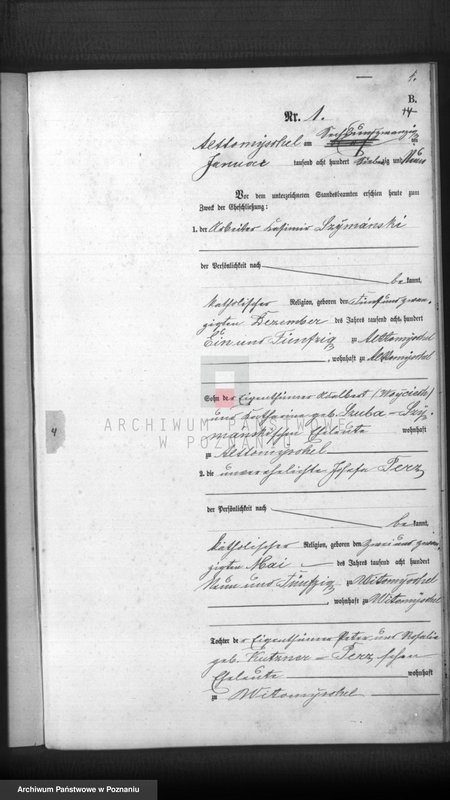 1.
B.
14
Nr. 1.
Alttomyschel am Sechsundzwanzig ten
Januar tausend acht hundert Siebenzig und Neun
Vor dem unterzeichneten Standesbeamten erschien heute zum
Zweck der Eheschließung:
1. der Arbeiter Casimir Szymánski
der Persönlichkeit nach
be kannt,
katholischer Religion, geboren den Fünfundzwan-
zigsten Dezember des Jahres tausend acht hundert
Ein und Fünfzig zu Alttomyschel
, wohnhaft zu Alttomyschel
Sohn der Eigenthümer Adalbert (Woyciech)
und Katharina geb. Szuba - Szy-
manskischen Eheleute wohnhaft
zu Alttomyschel
2. die unverehelichte Josefa Perz
der Persönlichkeit nach
be kannt,
katholischer Religion, geboren den Zweiundzwan-
zigsten Mai des Jahres tausend acht hundert
Neun und Fünfzig zu Witomyschel
, wohnhaft zu Witomyschel
Tochter der Eigenthümer Peter und Rosalie
geb. Kutzner - Perz schen
Eheleute wohnhaft
zu Witomyschel
4
ARCHIWUM PAŃSTWOWE
W POZNANIU
Archiwum Państwowe w Poznaniu